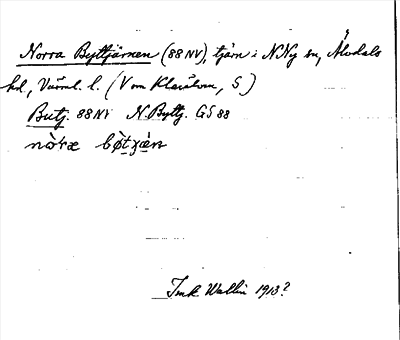 Norra Byttjärnen (88 NV), tjärn i N Ny sn, Älvdals
hd, Värml. l. (V om Klarälven, S)
Butj. 88 NV N. Byttj. GS 88
nòræ bø̀tʒä́n
Ink Wallin 1913?